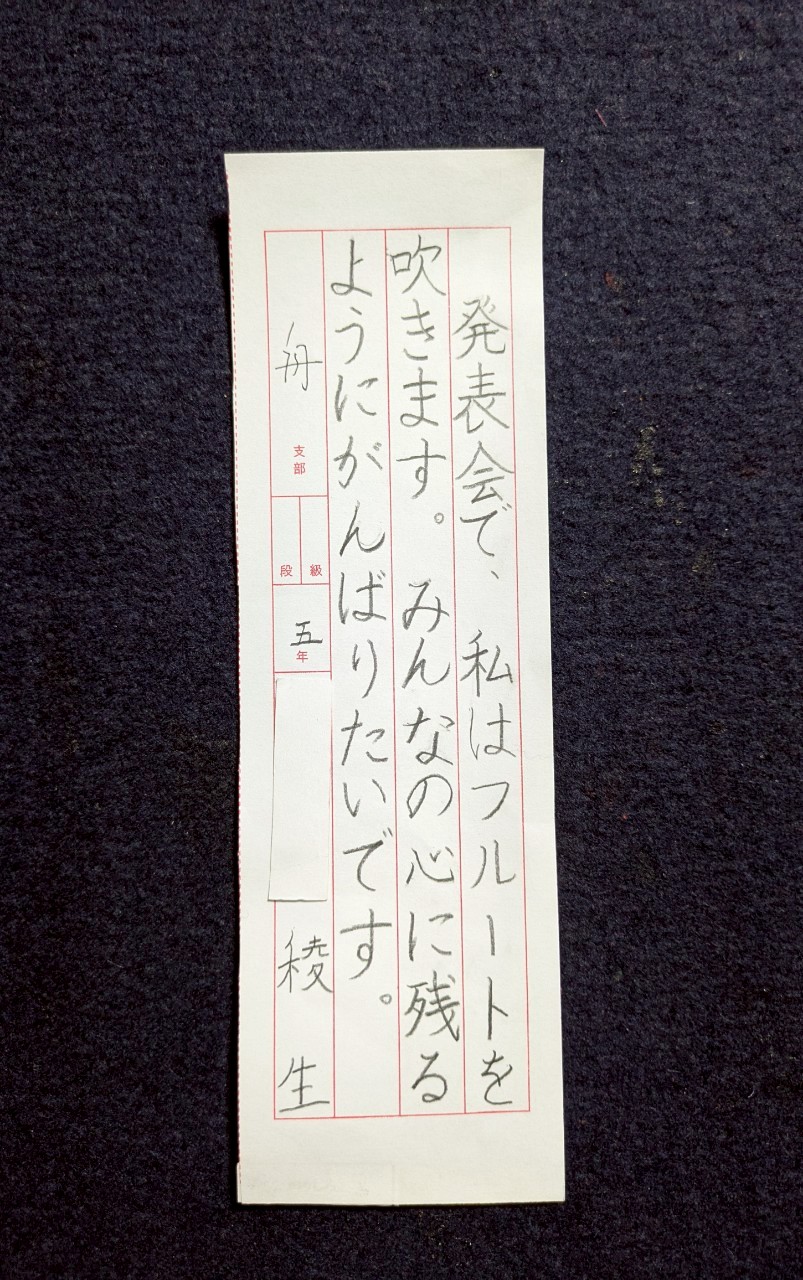 発表会で、私はフルートを
吹きます。みんなの心に残る
ようにがんばりたいです。
舟 支部
級
段
五年
稜生